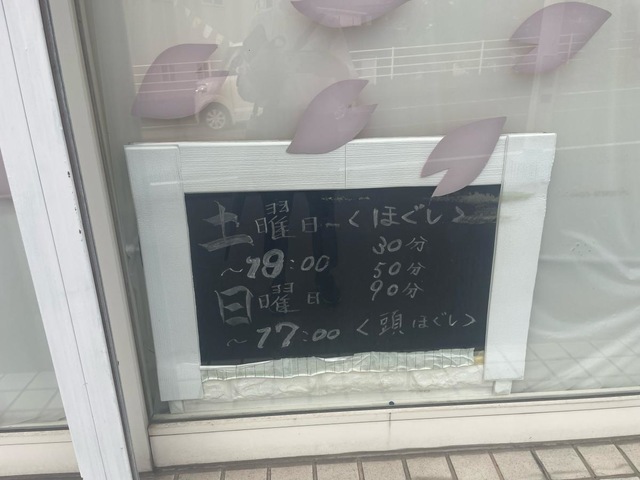 土曜日~<ほぐし>
~19:00 30分
50分
日曜日~ 90分
~17:00 <頭ほぐし>